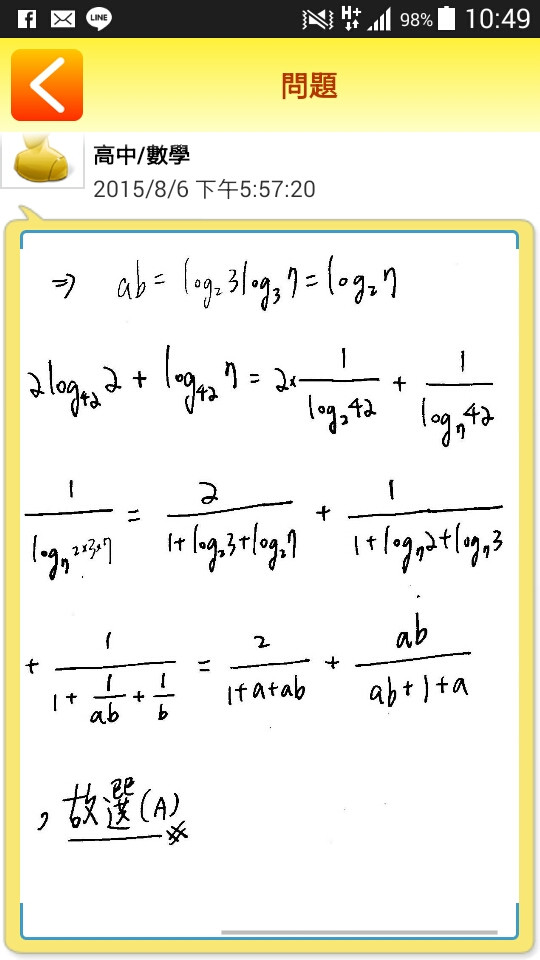 LINE H+ 98% 10:49
問題
高中/數學
2015/8/6 下午5:57:20
⇒ ab = log₂3 log₃7 = log₂7
2log₄₂2 + log₄₂7 = 2× 1/(log₂42) + 1/(log₇42)
1/(log₇2×3×7) = 2/(1+log₂3+log₂7) + 1/(1+log₇2+log₇3)
+ 1/(1 + 1/ab + 1/b) = 2/(1+a+ab) + ab/(ab+1+a)
, 故選(A)